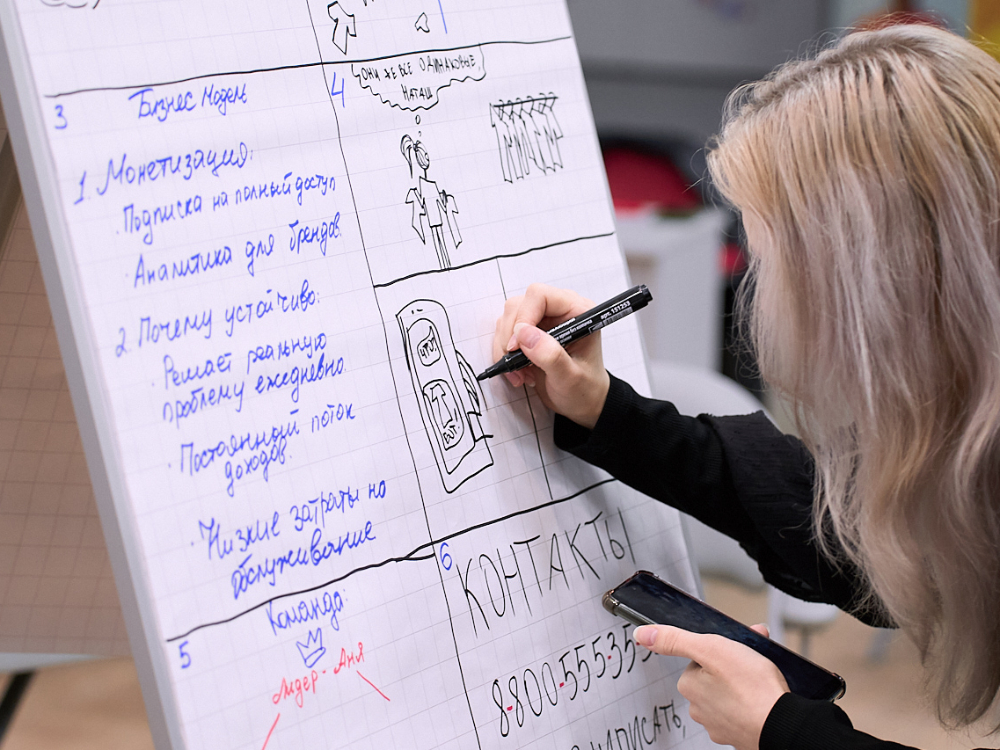 3
Бизнес Модель
1. Монетизация:
· Подписка на полный доступ
· Аналитика для брендов.
2. Почему устойчиво:
· Решает реальную
проблему ежедневно.
· Постоянный поток
доходов.
· Низкие затраты на
обслуживание
4
ОНИ ЖЕ ВСЕ ОДИНАКОВЫЕ,
НАТАШ
арт. 131253
5
Команда:
Лидер - Аня
6
КОНТАКТЫ
8-800-555-35